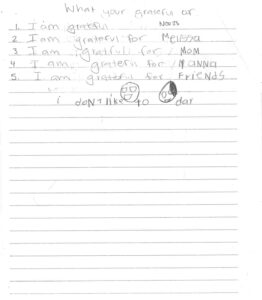 What your grateful or
1. I am grateful Noots
2 I am grateful for Melissa
3 I am gratful for Mom
4 I am grateful for Nanna
5. I am grateful for Friends
i dont like to day